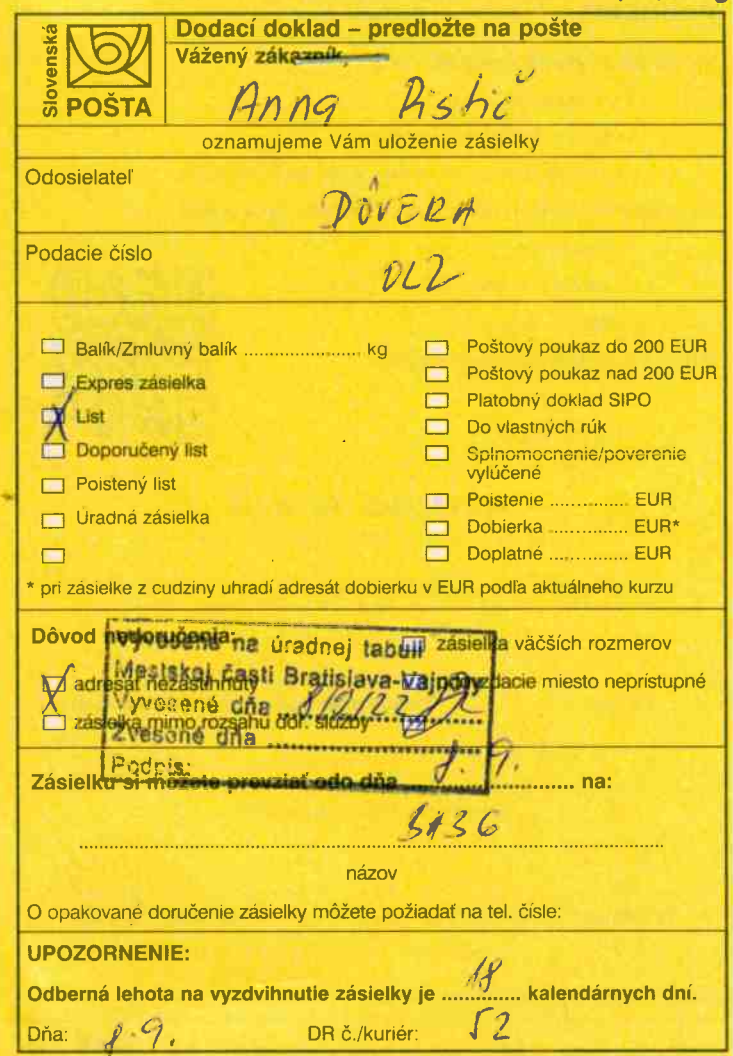 Slovenská
POŠTA
Dodací doklad – predložte na pošte
Vážený zákazník,
Anna Ristič
oznamujeme Vám uloženie zásielky
Odosielateľ
DÔVERA
Podacie číslo
OLZ
Balík/Zmluvný balík ...................... kg
Expres zásielka
List
Doporučený list
Poistený list
Úradná zásielka
Poštový poukaz do 200 EUR
Poštový poukaz nad 200 EUR
Platobný doklad SIPO
Do vlastných rúk
Splnomocnenie/poverenie
vylúčené
Poistenie ............... EUR
Dobierka ............... EUR*
Doplatné ............... EUR
* pri zásielke z cudziny uhradí adresát dobierku v EUR podľa aktuálneho kurzu
Dôvod nedoručenia:
adresát nezastihnutý
zásielka mimo rozsahu dor. služby
zásielka väčších rozmerov
miesto neprístupné
Vyvesené na úradnej tabuli
Mestskej časti Bratislava-Vajnory
Vyvesené dňa 8/9/22
Zvesené dňa
Podpis:
Zásielku si môžete prevziať odo dňa 8. 9. na:
BA36
názov
O opakované doručenie zásielky môžete požiadať na tel. čísle:
UPOZORNENIE:
Odberná lehota na vyzdvihnutie zásielky je 18 kalendárnych dní.
Dňa: 8.9. DR č./kuriér: 52